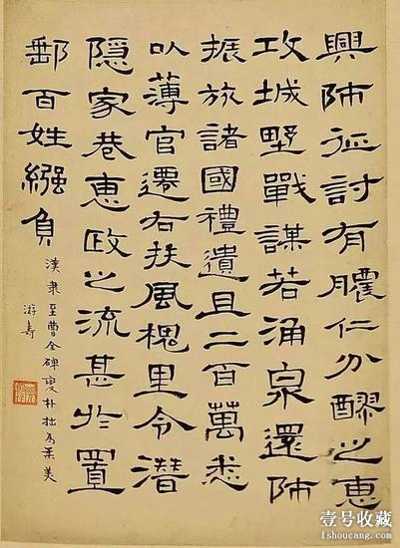 興師征討有膿仁分醪之惠
攻城墅戰謀若涌泉還師
振旅諸國禮遺且二百萬悉
以薄官遷右扶風槐里令潛
隱家巷惠政之流甚於置
郵百姓繦負
漢隶至曹全碑變朴拙為柔美
游寿
壹号收藏
1shoucang.com